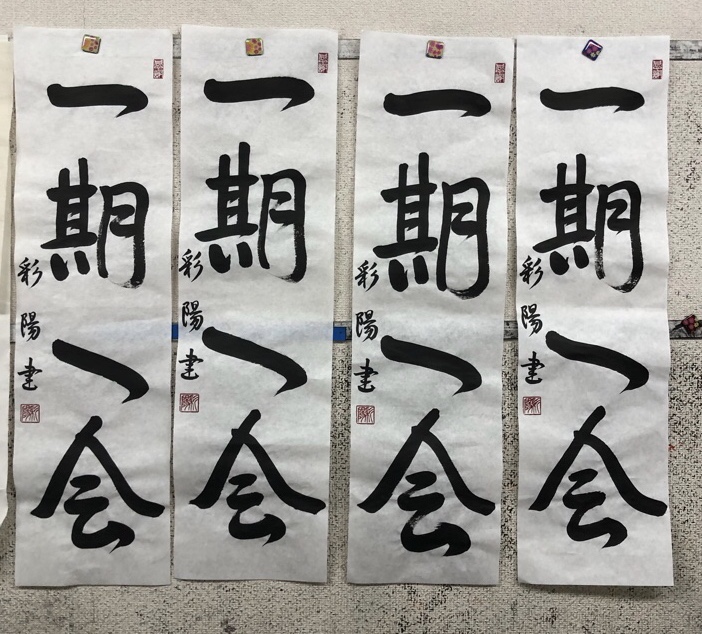 一期一会
彩陽書
一期一会
彩陽書
一期一会
彩陽書
一期一会
彩陽書